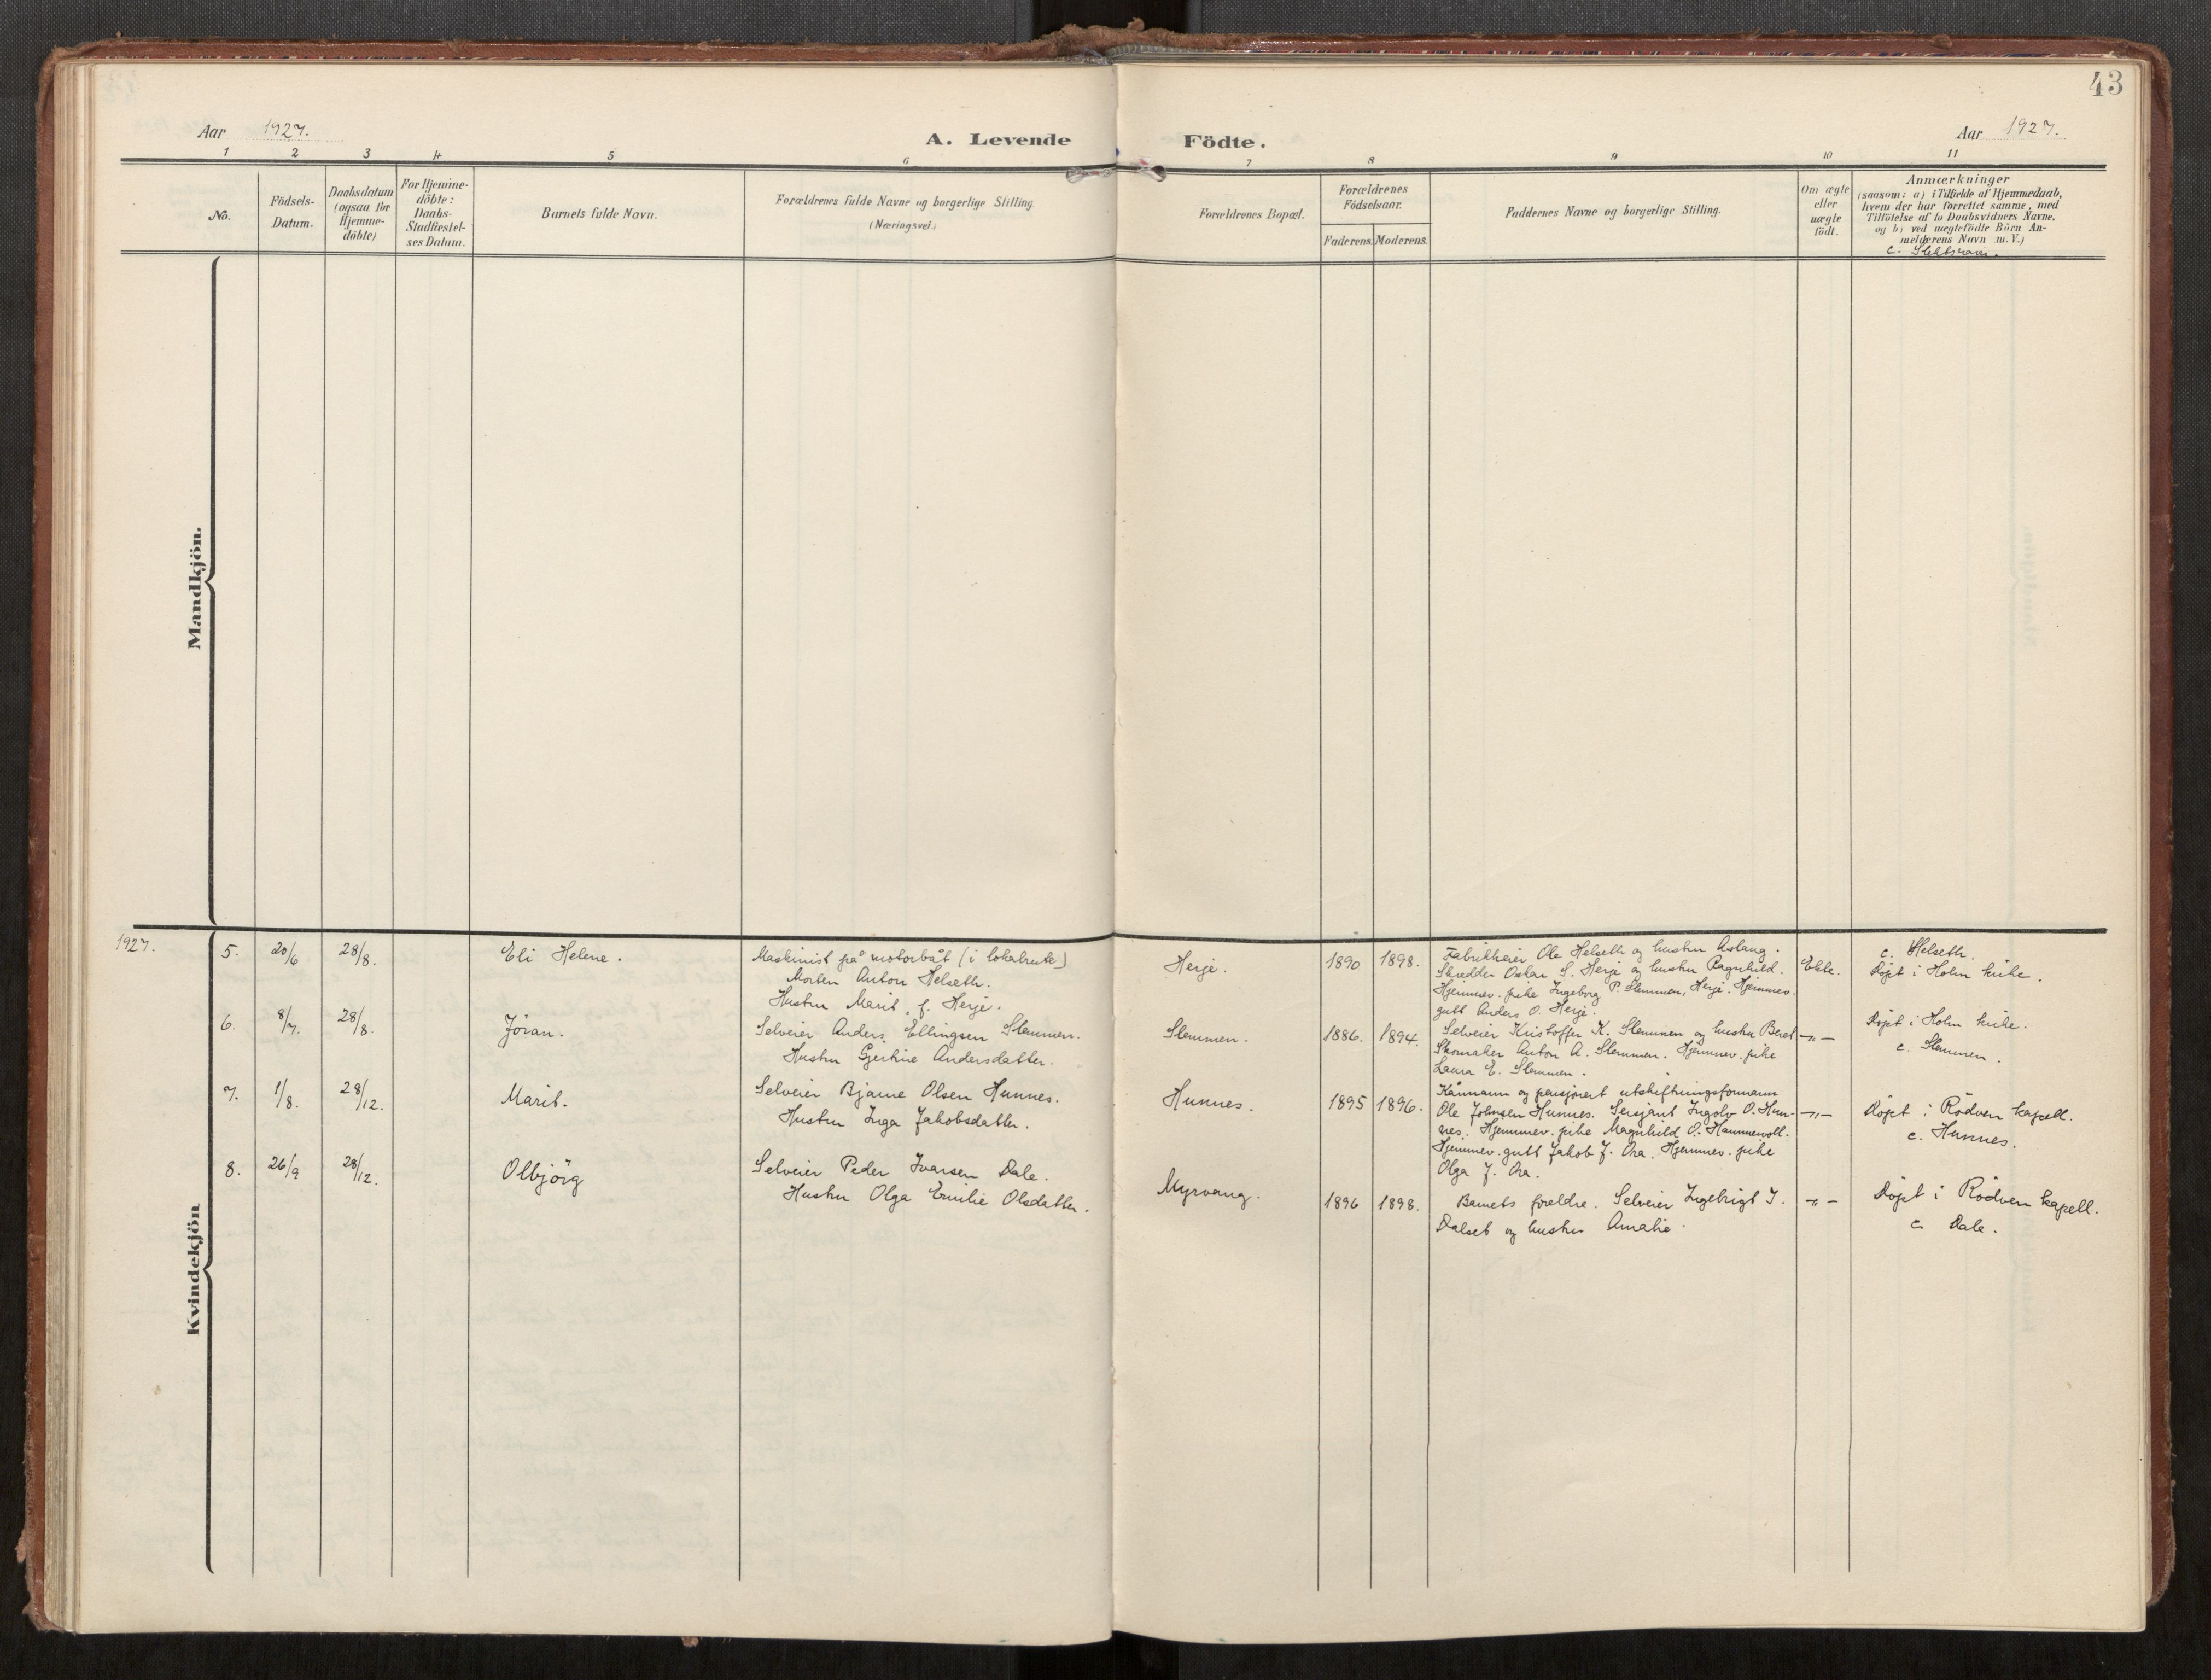 43
Aar 1927.
A. Levende Födte.
Aar 1927.
1 2 3 4 5 6 7 8 9 10 11
No.
Födsels-
Datum.
Daabsdatum
(ogsaa for
Hjemme-
döbte)
For Hjemme-
döbte:
Daabs-
Stadfæstel-
ses Datum.
Barnets fulde Navn.
Forældrenes fulde Navne og borgerlige Stilling.
(Næringsvei.)
Forældrenes Bopæl.
Forældrenes
Födselsaar.
Faderens. Moderens.
Faddernes Navne og borgerlige Stilling.
Om ægte
eller
uægte
födt.
Anmærkninger
(saasom: a) i Tilfælde af Hjemmedaab,
hvem der har forrettet samme, med
Tilföielse af to Daabsvidners Navne.
og b) ved uegtefödte Börn An-
melderens Navn m.V.)
c. Slektsnavn.
Mandkjön.
Kvindekjön
1927.
5. 20/6 28/8.
Eli Helene.
Maskinist på motorbåt (i lokalrute)
Morten Anton Helseth.
Hustru Marit, f. Herje.
Herje.
1890 1898.
Fabrikkeier Ole Helseth og hustru Aslaug.
Skredder Oskar S. Herje og hustru Ragnhild.
Hjemmev. pike Ingeborg P. Slemmen, Herje. Hjemmev.
gutt Anders O. Herje.
Ekte.
c. Helseth.
Döpt i Holm kirke.
6. 8/7. 28/8.
Jöran.
Selveier Anders Ellingsen Slemmen.
Hustru Gjertine Andersdatter.
Slemmen.
1886. 1894.
Selveier Kristoffer K. Slemmen og hustru Beret
Skomaker Anton A. Slemmen. Hjemmev. pike
Laura E. Slemmen.
-„-
Döpt i Holm kirke.
c. Slemmen.
7. 1/8. 28/12.
Marit.
Selveier Bjarne Olsen Hunnes.
Hustru Inga Jakobsdatter.
Hunnes.
1895 1896.
Kårmann og pensjonert utskiftningsformann
Ole Johnsen Hunnes. Sersjant Ingolv O. Hun-
nes. Hjemmev. pike Magnhild O. Hammervoll.
Hjemmev. gutt Jakob J. Ora. Hjemmev. pike
Olga J. Ora.
-„-
Döpt i Rödven kapell.
c. Hunnes.
8. 26/9 28/12.
Olbjörg
Selveier Peder Ivarsen Dale.
Hustru Olga Emilie Olsdatter.
Myrvang.
1896 1898.
Barnets foreldre. Selveier Ingebrigt I.
Dalset og hustru Amalie.
-„-
Döpt i Rödven kapell.
c. Dale.